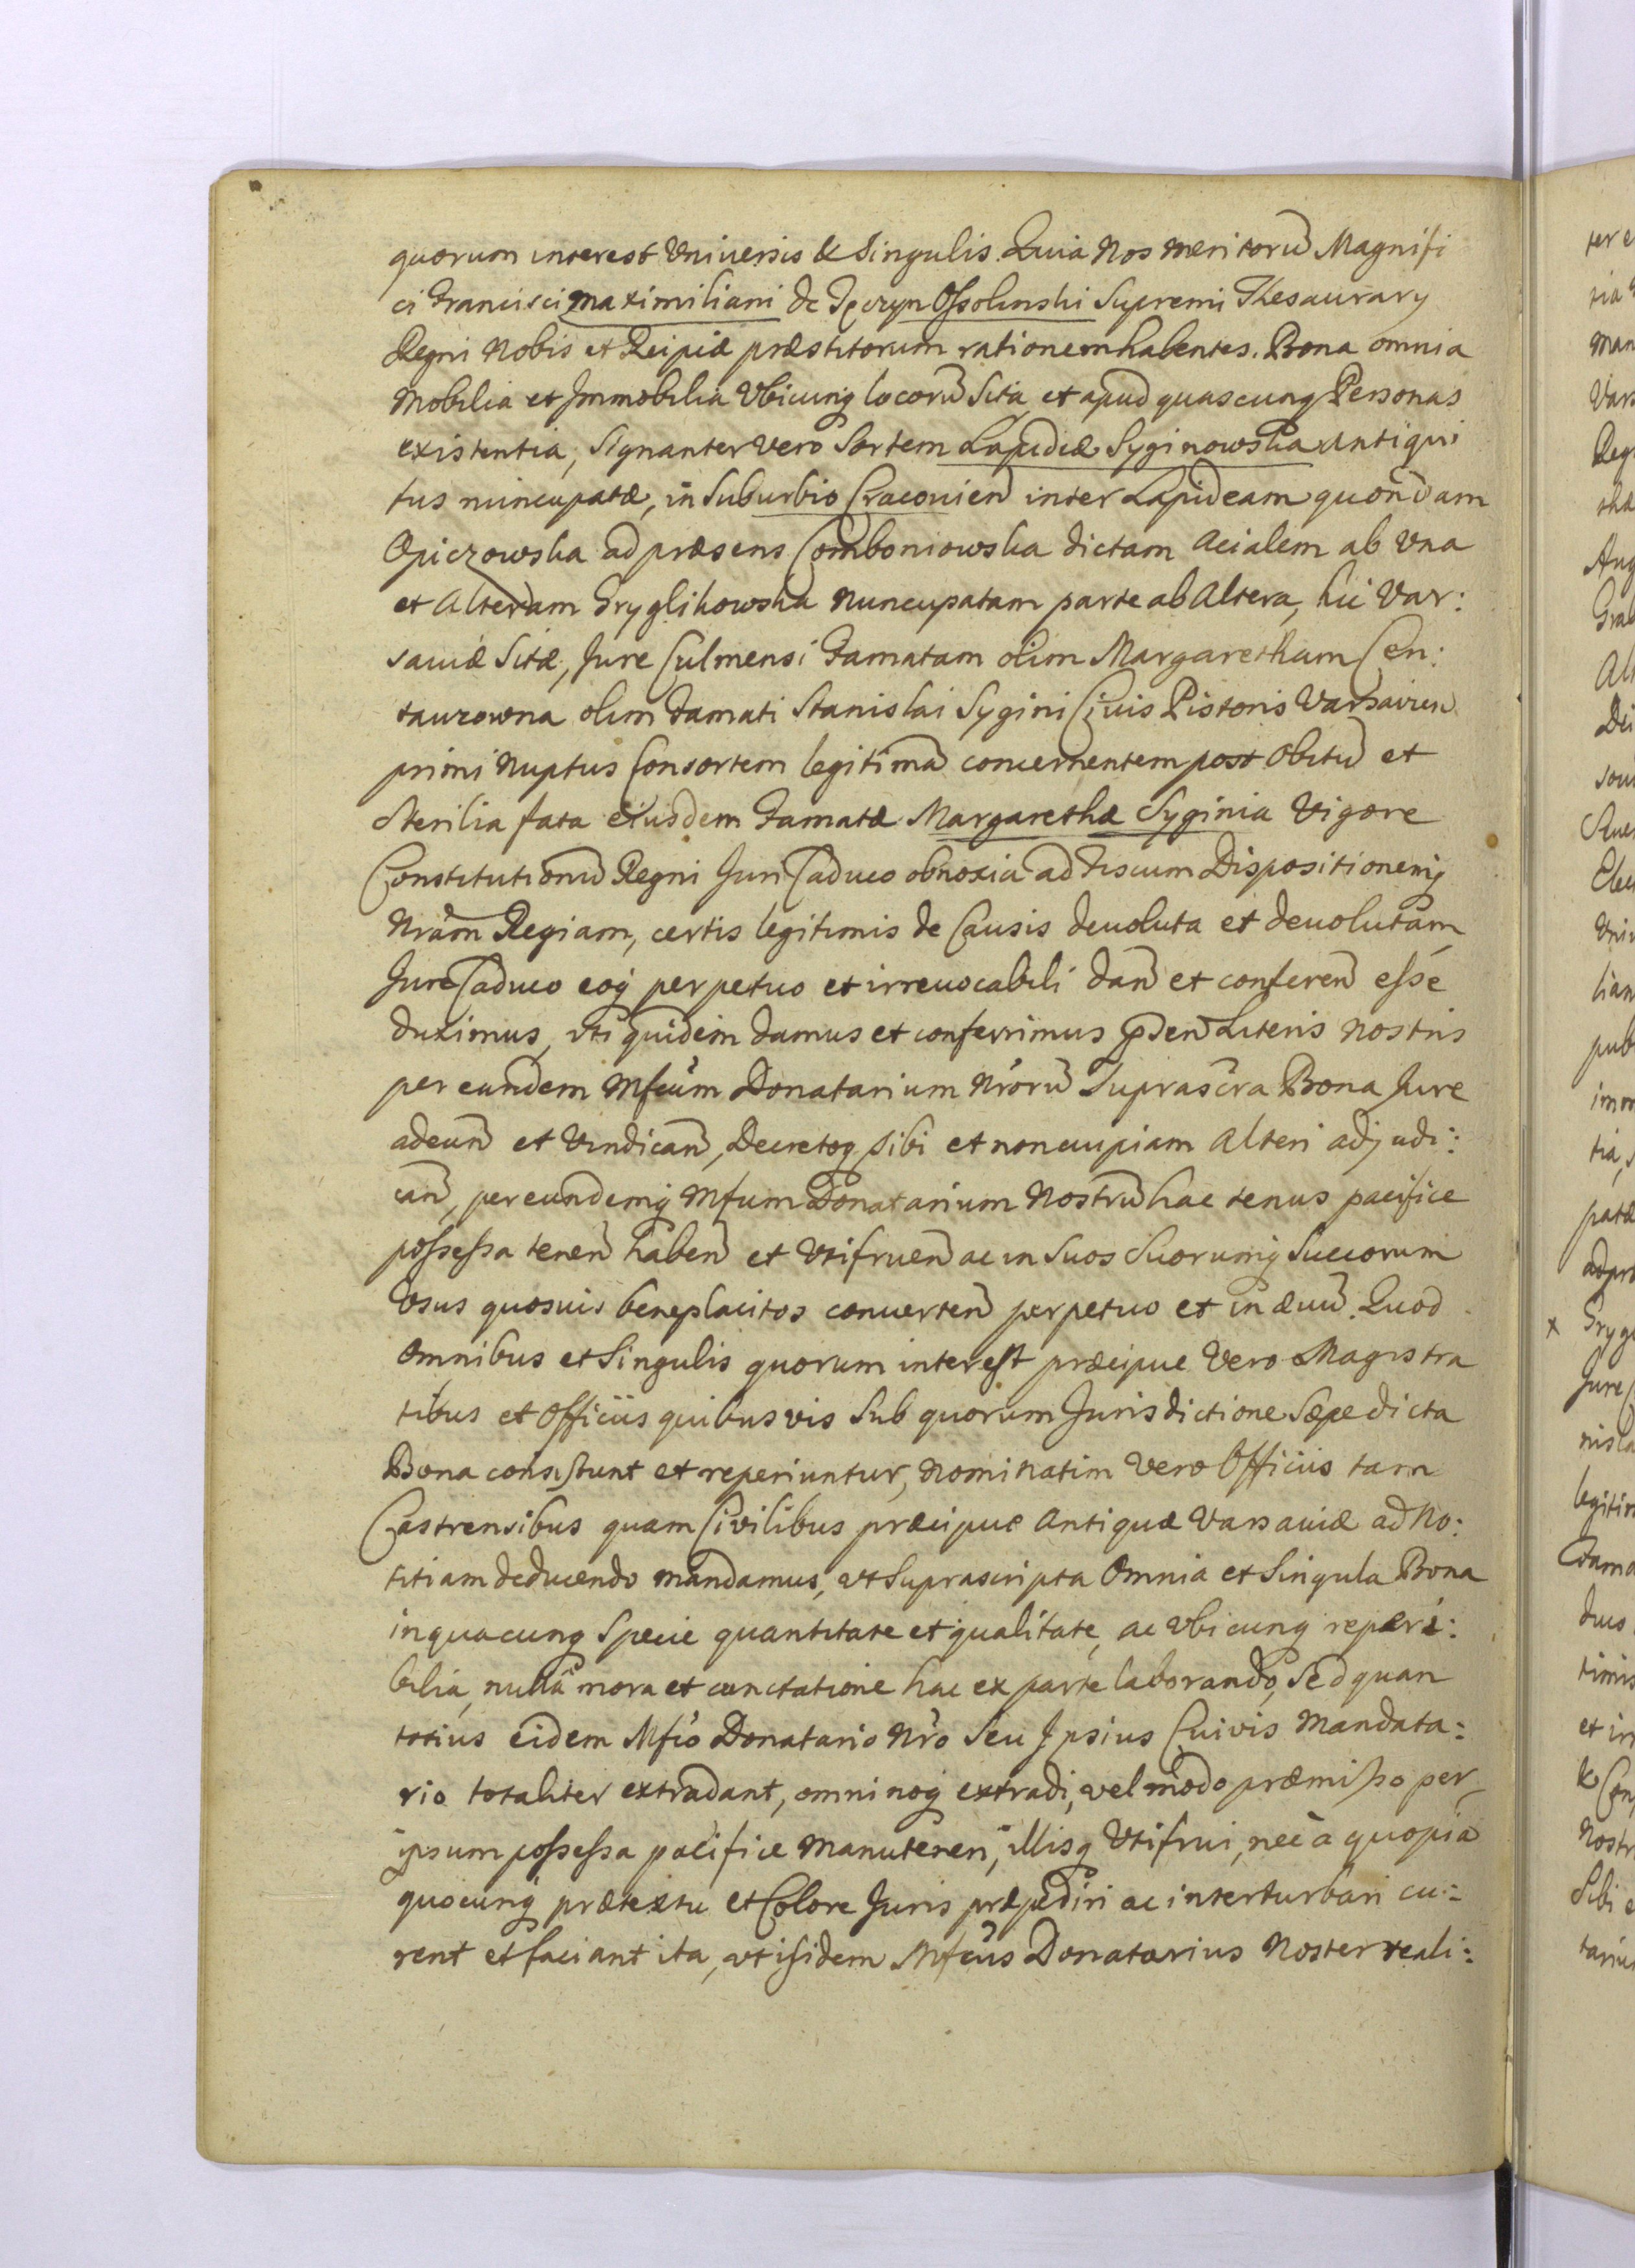 quorum interest Universis & Singulis. Quia Nos meritorū Magnifi
ci Francisci Maximiliani de Tęczyn Ossolinski Supremi Thesaurary
Regni Nobis et Reipiæ præstitorum rationem habentes. Bona omnia
Mobilia et Immobilia Vbicunq locorū Sita et apud quascunq Personas
existentia, Signanter vero Sortem Lapideæ Syginowska Antiqui
tus nuncupatæ, in Suburbio Cracovien inter Lapideam quondam
Opiczowska ad præsens Comboniowska dictam Acialem ab Vna
et Alteram Gryglikowska Nuncupatam parte ab Altera, hic Var:
saviæ Sitæ, Jure Culmensi Famatam olim Margaretham Cen:
taurowna olim Famati Stanislai Sygini Civis Pistoris Varsavien
primi Nuptus Consortem legitimā concernentem post Obitū et
Sterilia fata eiusdem Famatæ Margarethæ Syginia Vigore
Constitutionū Regni Juri Caduco obnoxia ad Fiscum Dispositionemq
Nram Regiam, certis legitimis de Causis devoluta et devolutam
Jure Caduco eoq perpetuo et irrevocabili dan et conferen esse
duximus, uti quidem damus et conferrimus psen Literis Nostris
per eundem Mfcum Donatarium Nrorū Suprascra Bona Jure
adeun et Vindican, Decretoq sibi et non cuipiam Alteri adjudi:
can, per eundemq Mfum Donatarium Nostrū hac tenus pacifice
possessa tenen haben et Vtifruen ac in Suos Suorumq Succorum
Vsus quosvis beneplacitos converten perpetuo et in ævū. Quod
Omnibus et Singulis quorum interest præcipue Vero Magistra
tibus et Officiis quibusvis Sub quorum Jurisdictione Sæpe dicta
Bona consistunt et reperiuntur, Nominatim Vero Officiis tam
Castrensibus quam Civilibus præcipue Antiquæ Varsaviæ ad No:
titiam deducendo mandamus, ut Suprascripta Omnia et Singula Bona
in quacunq Specie quantitate et qualitate, ac Vbicunq reperi:
bilia, nulla mora et cunctatione hac ex parte laborando, Sed quan
totius eidem Mfco Donatario Nro Seu Ipsius Cuivis Mandata:
rio totaliter extradant, omninoq extradi, vel modo præmisso per
ipsum possessa pacifice Manuteneri, illisq Vtifrui, nec a quopiā
quocunq prætextu et Colore Juris præpediri ac interturbari cu:
rent et faciant ita, ut isidem Mfcus Donatarius Noster reali: